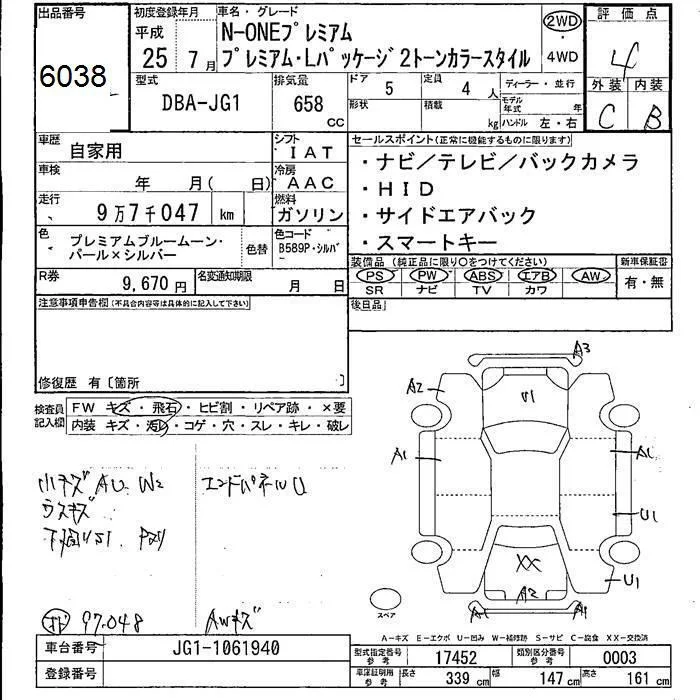 出品番号
6038
初度登録年月
平成
25 7月
車名・グレード
N-ONEプレミアム
プレミアム・Lパッケージ2トーンカラースタイル
2WD
・
4WD
評価点
4
外装 内装
C B
型式
DBA-JG1
排気量
658
CC
ドア
5
定員
4 人
形状
積載
kg
ディーラー・並行
モデル年式 年
ハンドル 左・右
車歴
自家用
シフト
IAT
車検
年 月( 日)
冷房
AAC
走行
9万7千047 km
燃料
ガソリン
色
プレミアムブルームーン・
パール×シルバー
色替
色コード
B589P・シルバー
R券
9,670 円
名変通知期限
月 日
セールスポイント(正常に機能するものに限ります)
・ナビ/テレビ/バックカメラ
・HID
・サイドエアバック
・スマートキー
装備品 (純正品に限り○をつけてください)
PS PW ABS エアB AW
SR ナビ TV カワ
新車保証書
有・無
後日品
注意事項申告欄(不具合内容等は具体的に記入して下さい)
修復歴 有〔箇所 〕
検査員記入欄
FW キズ・飛石・ヒビ割・リペア跡・×要
内装 キズ・汚レ・コゲ・穴・スレ・キレ・破レ
小キズ AU W2
ウスキズ
下回りS1
エンドパネルU
97,048
AWキズ
A3
A2
U1
A1
A1
U1
XX
A2
U1
A1
A1
スペア
A-キズ E-エクボ U-凹み W-補修跡 S-サビ C-腐食 XX-交換済
車台番号
JG1-1061940
登録番号
型式指定番号 参考
17452
類別区分番号 参考
0003
車庫証明用 参考
長さ 339 cm
幅 147 cm
高さ 161 cm